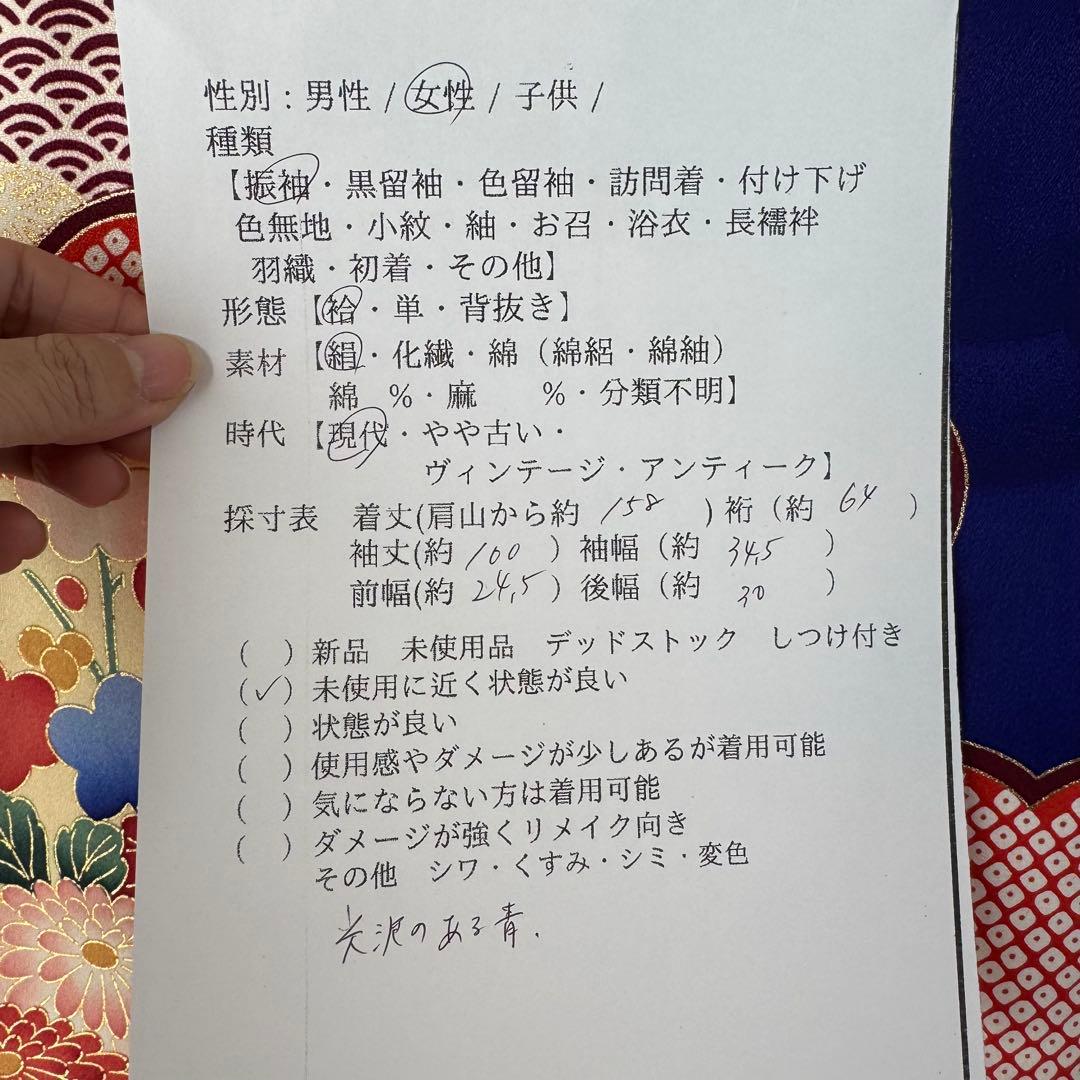 性別：男性 / 女性 / 子供 /
種類
【振袖・黒留袖・色留袖・訪問着・付け下げ
色無地・小紋・紬・お召・浴衣・長襦袢
羽織・初着・その他】
形態【袷・単・背抜き】
素材【絹・化繊・綿（綿絽・綿紬）
綿　%・麻　　%・分類不明】
時代【現代・やや古い・
ヴィンテージ・アンティーク】
採寸表　着丈(肩山から約 158 ) 裄（約 64 ）
袖丈(約 100 ）袖幅（約 34,5 ）
前幅(約 24,5 ）後幅（約 30 ）
(　) 新品　未使用品　デッドストック　しつけ付き
(✓) 未使用に近く状態が良い
(　) 状態が良い
(　) 使用感やダメージが少しあるが着用可能
(　) 気にならない方は着用可能
(　) ダメージが強くリメイク向き
その他　シワ・くすみ・シミ・変色
光沢のある青.